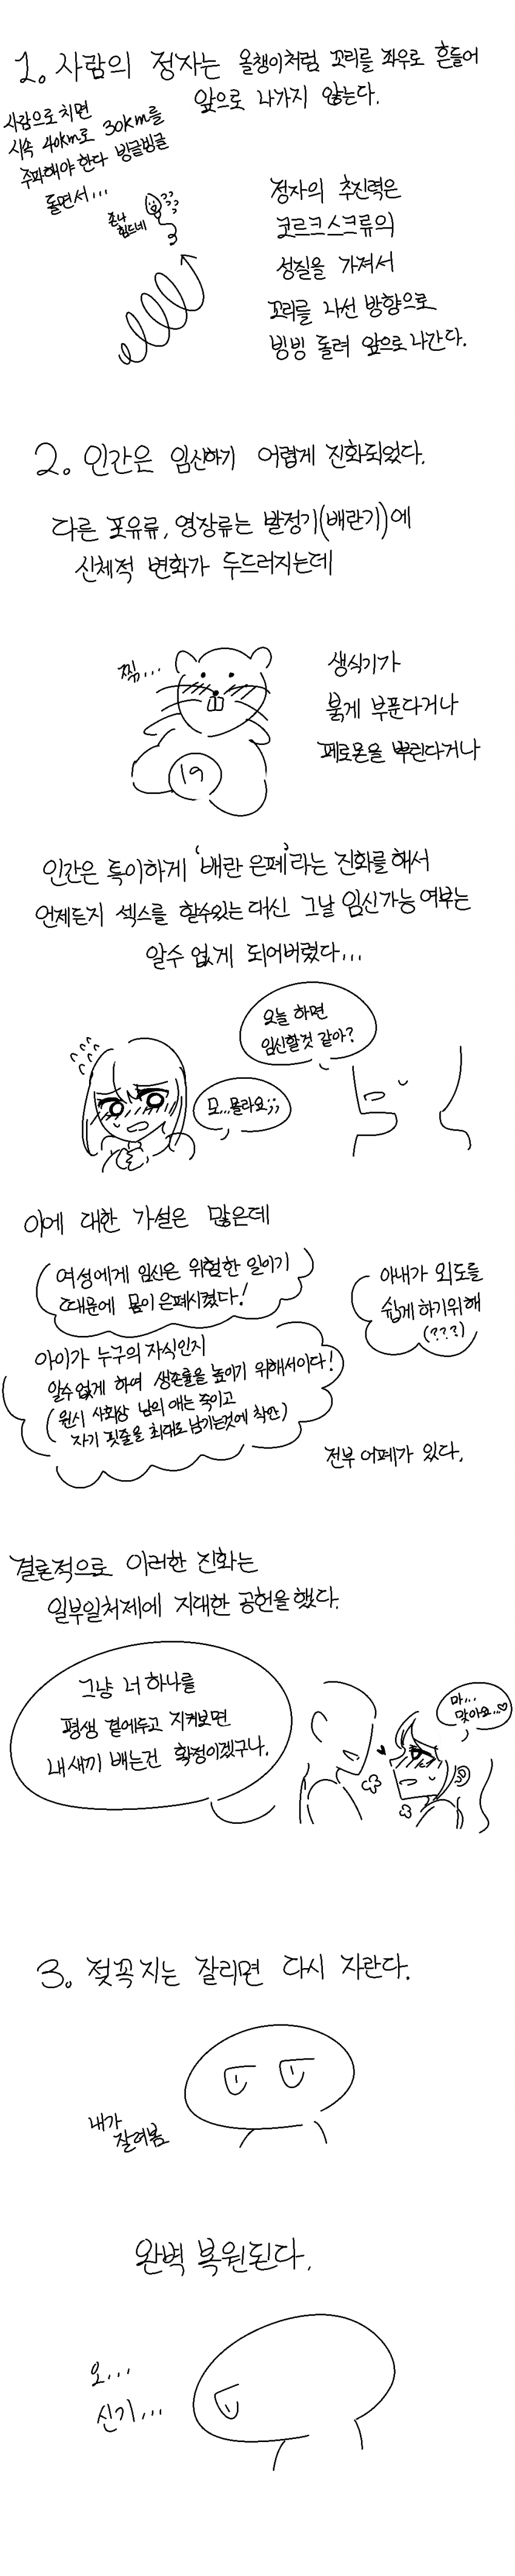 1. 사람의 정자는 올챙이처럼 꼬리를 좌우로 흔들어
앞으로 나가지 않는다.
사람으로 치면
시속 40km로 30km를
주파해야 한다 빙글빙글
돌면서...
존나
힘드네
정자의 추진력은
코르크스크류의
성질을 가져서
꼬리를 나선 방향으로
빙빙 돌려 앞으로 나간다.
2. 인간은 임신하기 어렵게 진화되었다.
다른 포유류, 영장류는 발정기(배란기)에
신체적 변화가 두드러지는데
찍...
19
생식기가
붉게 부푼다거나
페로몬을 뿌린다거나
인간은 특이하게 '배란 은폐'라는 진화를 해서
언제든지 섹스를 할수있는 대신 그날 임신가능 여부는
알수 없게 되어버렸다...
오늘 하면
임신할것 같아?
모...몰라요;;
이에 대한 가설은 많은데
여성에게 임신은 위험한 일이기
때문에 몸이 은폐시켰다!
아내가 외도를
쉽게 하기위해
(???)
아이가 누구의 자식인지
알수 없게 하여 생존률을 높이기 위해서이다!
(원시 사회상 남의 애는 죽이고
자기 핏줄을 최대로 남기는것에 착안)
전부 어폐가 있다.
결론적으로 이러한 진화는
일부일처제에 지대한 공헌을 했다.
그냥 너 하나를
평생 곁에두고 지켜보면
내새끼 배는건 확정이겠구나.
마...
맞아요...♡
3. 젖꼭지는 잘리면 다시 자란다.
내가
잘려봄
완벽 복원된다.
오...
신기...